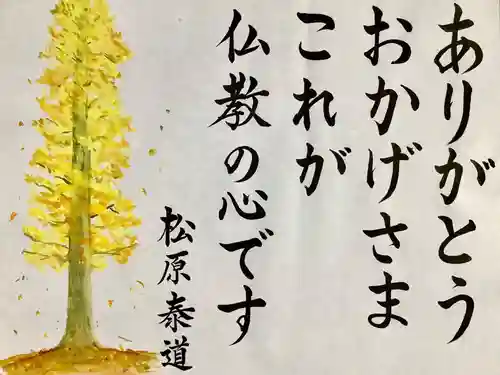 ありがとう
おかげさま
これが
仏教の心です
松原泰道